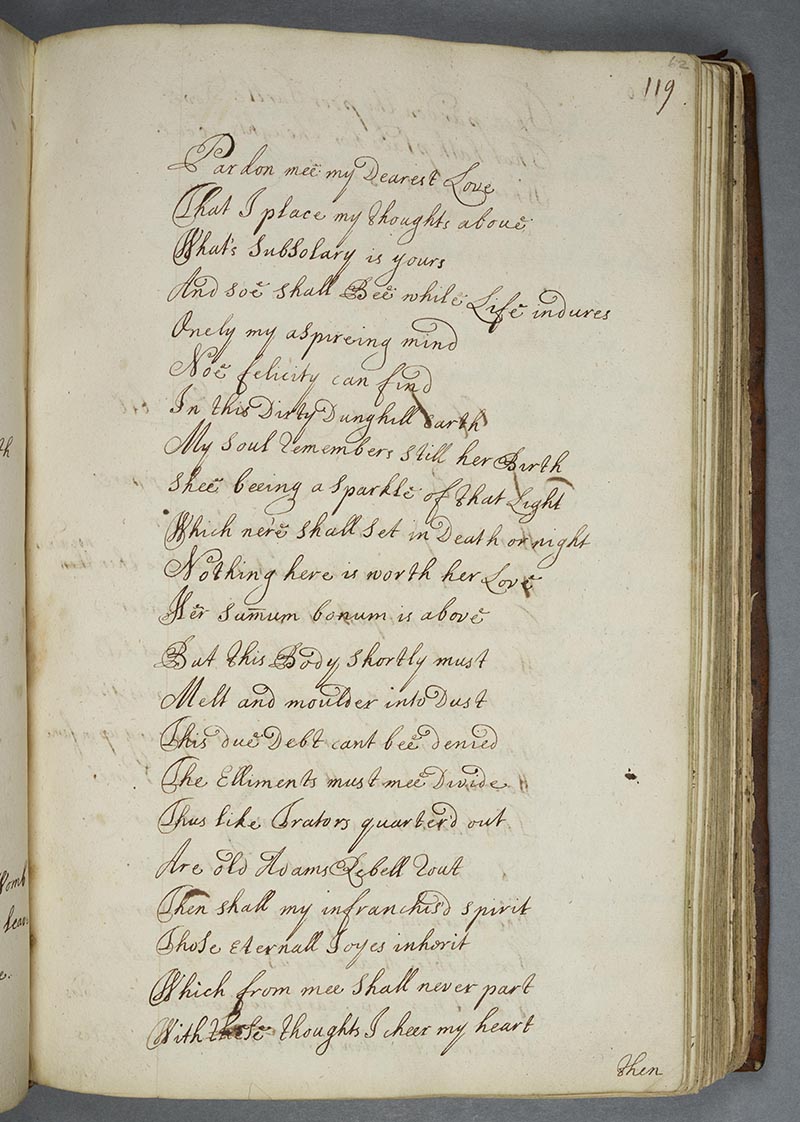 62
119
Pardon mee my Dearest Love
That I place my thoughts above
What's SubSolary is yours
And soe shall Bee while Life indures
Onely my aspireing mind
Noe felicity can find
In this Dirty Dunghill Earth
My Soul remembers still her Birth
Shee beeing a Sparkle of that Light
Which ne're shall Set in Death or night
Nothing here is worth her Love
Her sum̅um bonum is above
But this Body shortly must
Melt and moulder into Dust
This due Debt cant bee denied
The Elliments must mee Divide
Thus like Trators quarter'd out
Are old Adams Rebell rout
Then shall my infranchis'd spirit
Those Eternall Joyes inherit
Which from mee Shall never part
With these thoughts I cheer my heart
then
th
Womb
leav
e.